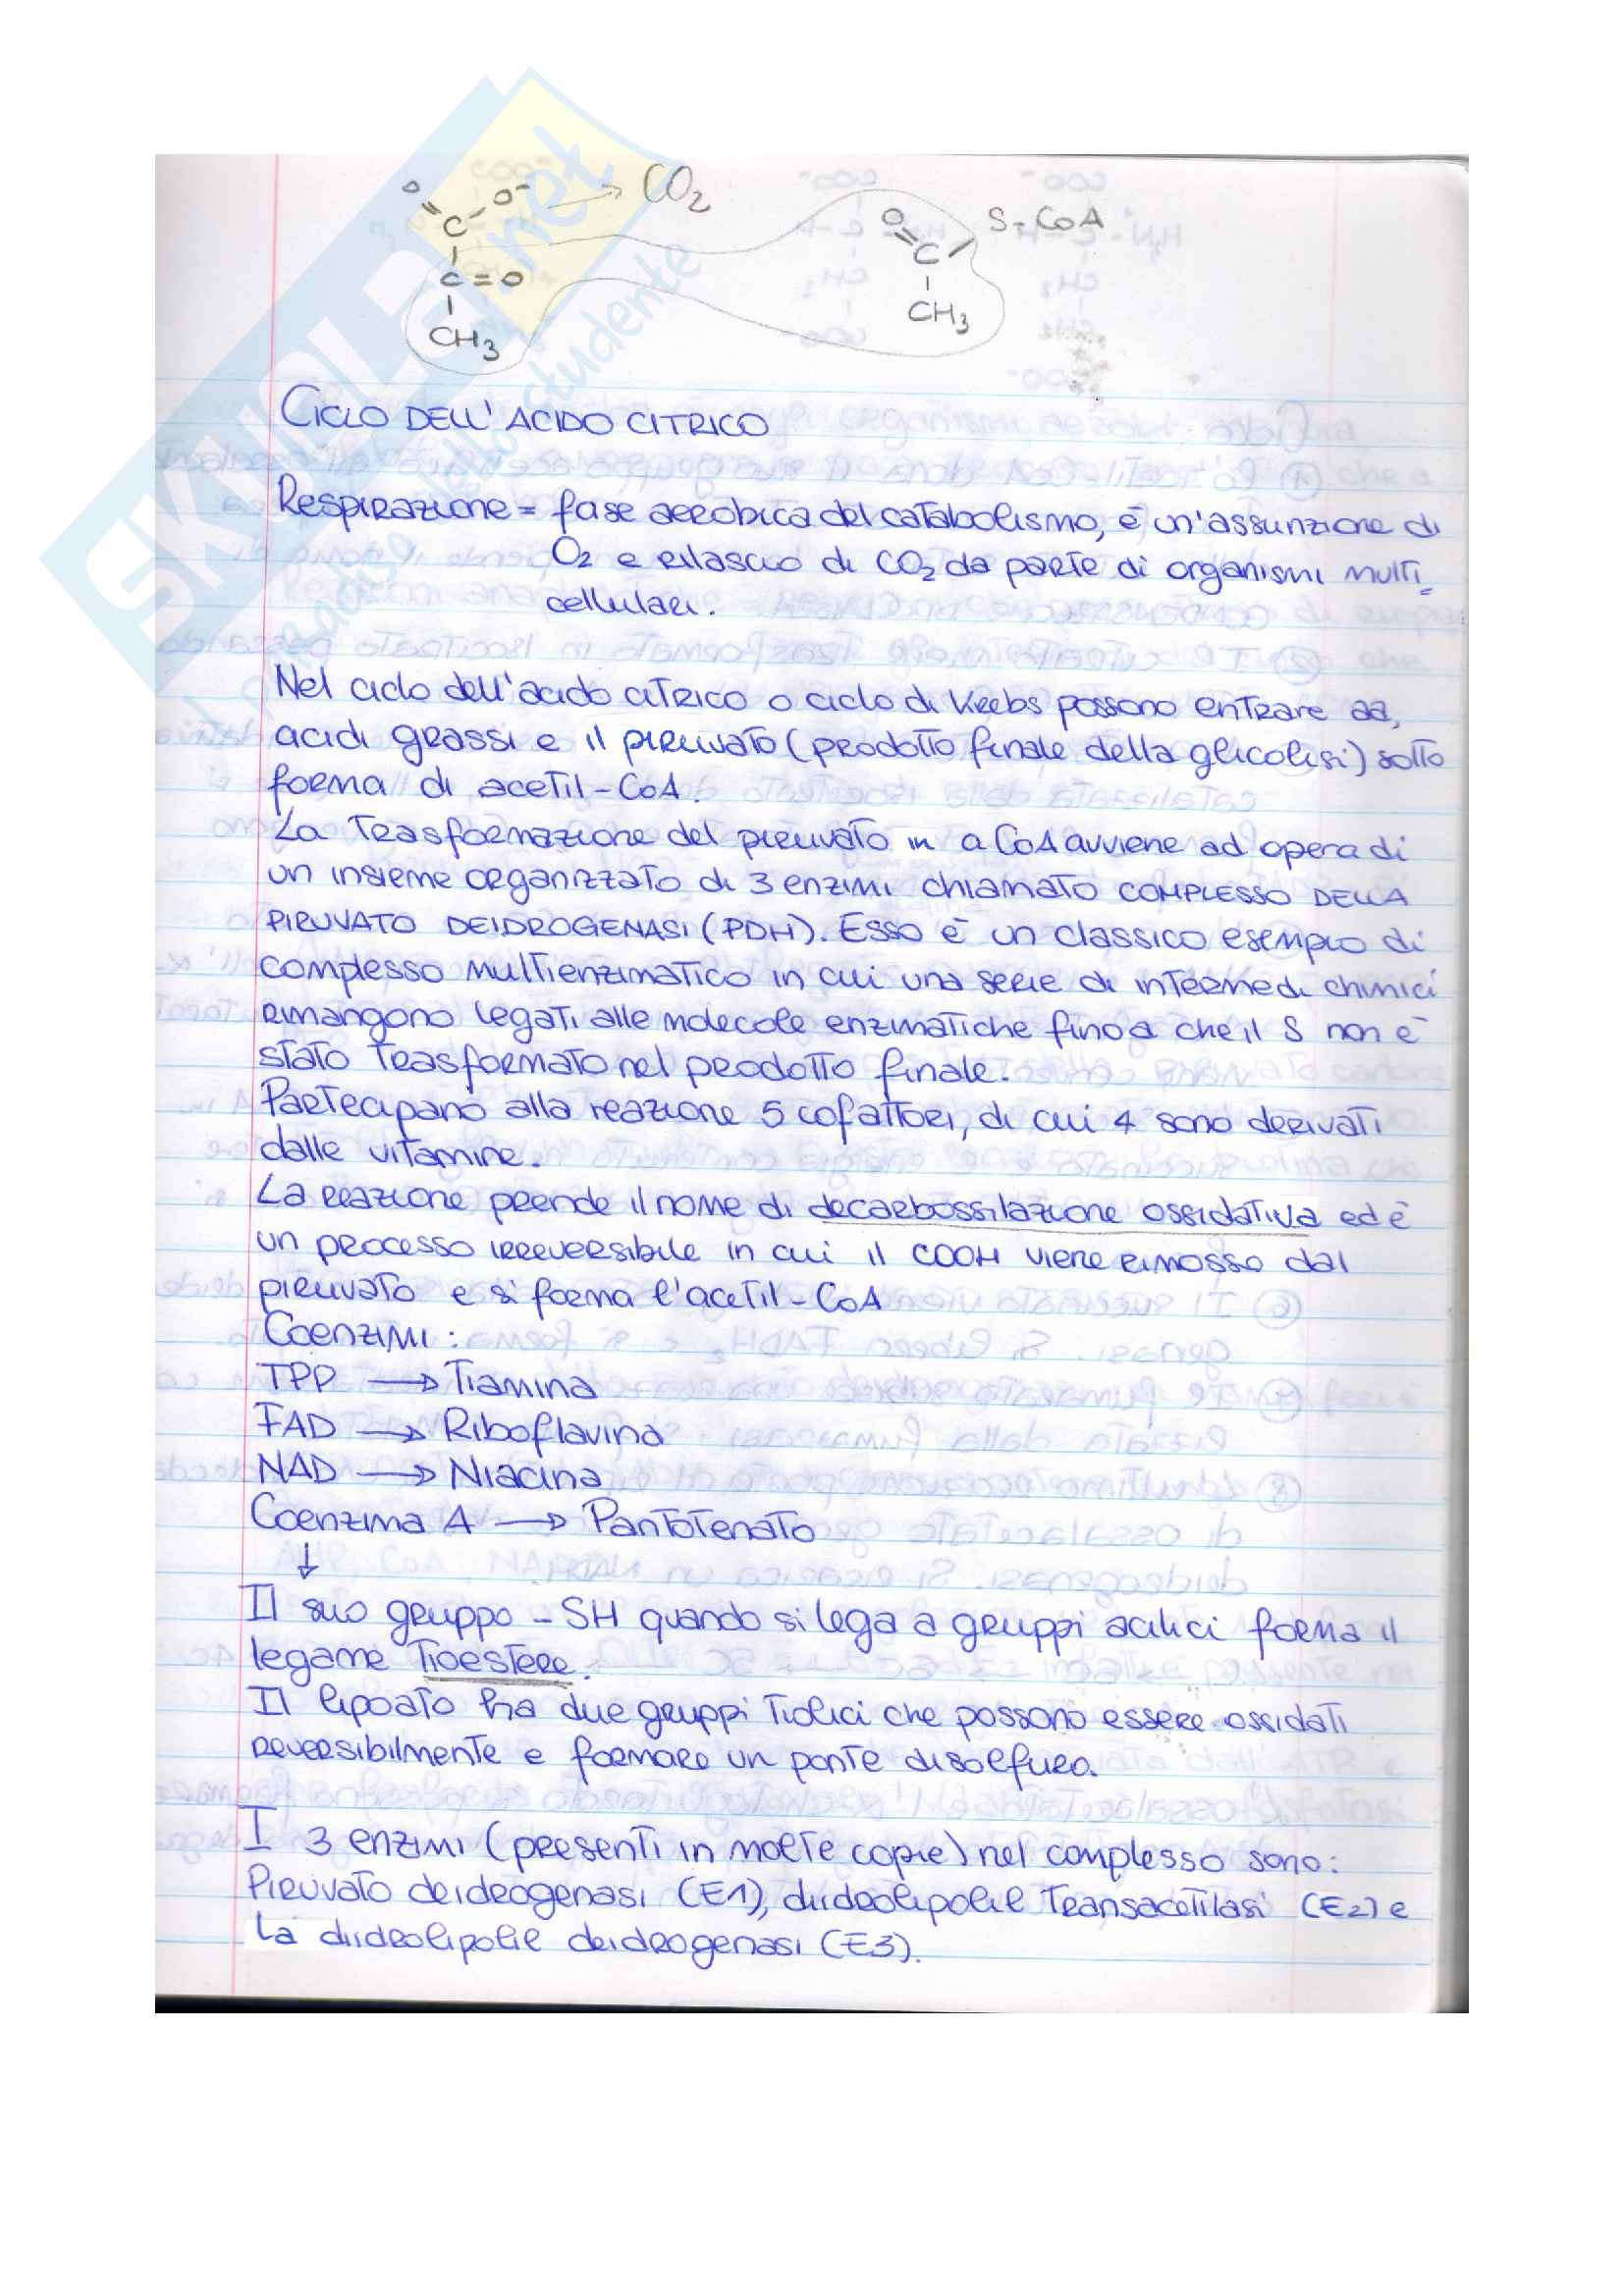 O O⁻ → CO₂
C
C=O
CH₃
O S-CoA
C
CH₃
CICLO DELL'ACIDO CITRICO
Respirazione = fase aerobica del catabolismo, è un'assunzione di
O₂ e rilascio di CO₂ da parte di organismi multi=
cellulari.
Nel ciclo dell'acido citrico o ciclo di Krebs possono entrare aa,
acidi grassi e il piruvato (prodotto finale della glicolisi) sotto
forma di acetil-CoA.
La trasformazione del piruvato in aCoA avviene ad opera di
un insieme organizzato di 3 enzimi chiamato COMPLESSO DELLA
PIRUVATO DEIDROGENASI (PDH). Esso è un classico esempio di
complesso multienzimatico in cui una serie di intermedi chimici
rimangono legati alle molecole enzimatiche fino a che il S non è
stato trasformato nel prodotto finale.
Partecipano alla reazione 5 cofattori, di cui 4 sono derivati
dalle vitamine.
La reazione prende il nome di decarbossilazione ossidativa ed è
un processo irreversibile in cui il COOH viene rimosso dal
piruvato e si forma l'acetil-CoA
Coenzimi:
TPP → Tiamina
FAD → Riboflavina
NAD → Niacina
Coenzima A → Pantotenato
↓
Il suo gruppo -SH quando si lega a gruppi acilici forma il
legame Tioestere.
Il lipoato ha due gruppi tiolici che possono essere ossidati
reversibilmente e formare un ponte disolfuro.
I 3 enzimi (presenti in molte copie) nel complesso sono:
Piruvato deidrogenasi (E1), diidrolipolil transacetilasi (E2) e
la diidrolipolil deidrogenasi (E3).
SKUOLA.net
il paradiso dello studente